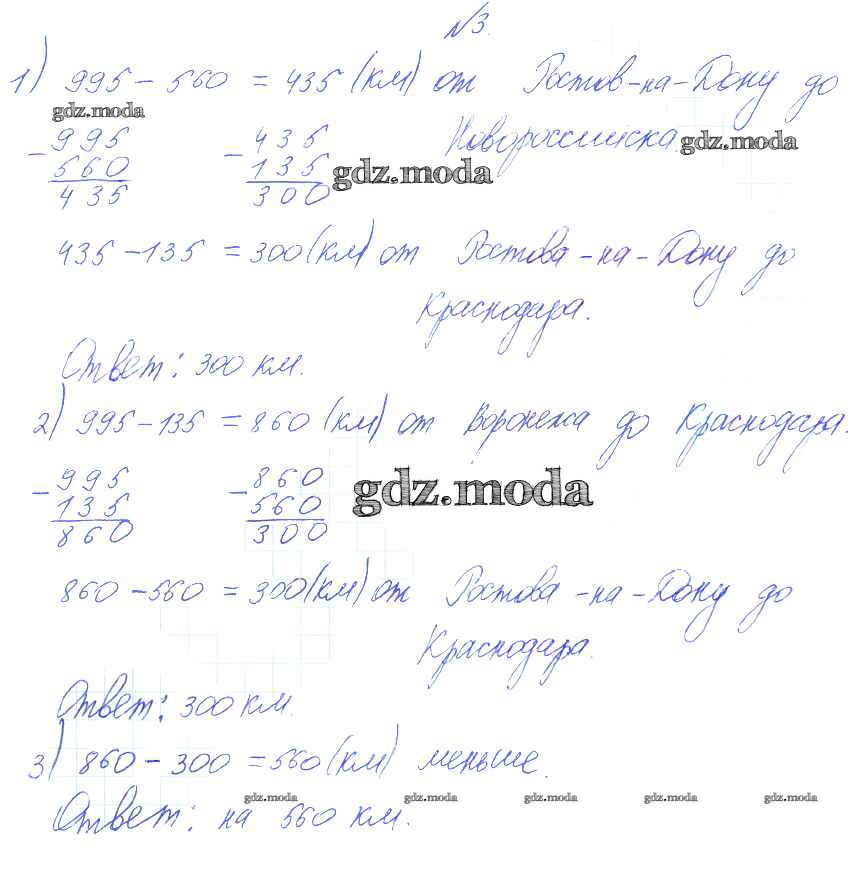 №3.
1) 995 – 560 = 435 (км) от Ростов-на-Дону до
gdz.moda
Новороссийска.
gdz.moda
– 995 – 435
560 135
gdz.moda
435 300
435 – 135 = 300 (км) от Ростова-на-Дону до
Краснодара.
Ответ: 300 км.
2) 995 – 135 = 860 (км) от Воронежа до Краснодара.
– 995 – 860
135 560
gdz.moda
860 300
860 – 560 = 300 (км) от Ростова-на-Дону до
Краснодара.
Ответ: 300 км.
3) 860 – 300 = 560 (км) меньше.
gdz.moda gdz.moda gdz.moda gdz.moda gdz.moda
Ответ: на 560 км.